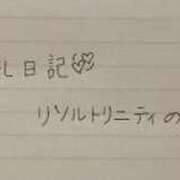 し日記
リソルトリニティの